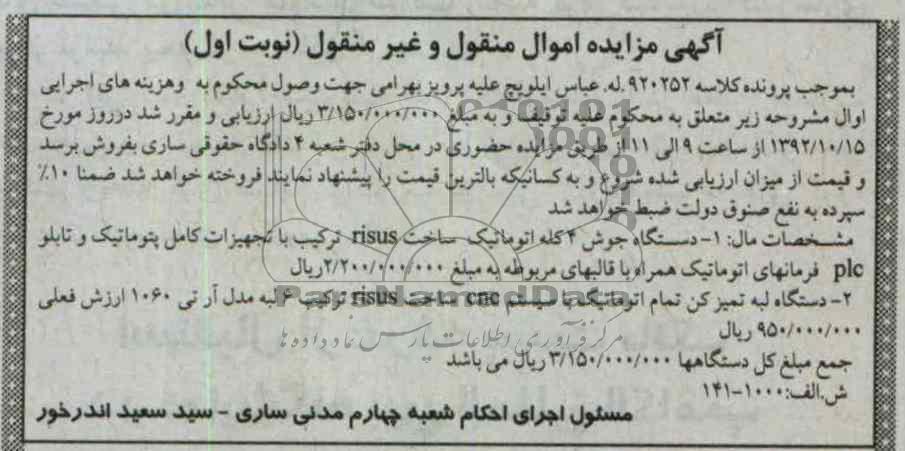 آگهی مزایده اموال منقول و غیر منقول (نوبت اول)
بموجب پرونده کلاسه ۹۲۰۲۵۲ له. عباس ایلویچ علیه پرویز بهرامی جهت وصول محکوم به وهزینه های اجرایی
اوال مشروحه زیر متعلق به محکوم علیه توقیف و به مبلغ ۳/۱۵۰/۰۰۰/۰۰۰ ریال ارزیابی و مقرر شد درروز مورخ
۱۳۹۲/۱۰/۱۵ از ساعت ۹ الی ۱۱ از طریق مزایده حضوری در محل دفتر شعبه ۴ دادگاه حقوقی ساری بفروش برسد
و قیمت از میزان ارزیابی شده شروع و به کسانیکه بالترین قیمت را پیشنهاد نمایند فروخته خواهد شد ضمنا ۱۰٪
سپرده به نفع صنوق دولت ضبط خواهد شد
مشخصات مال: ۱- دستگاه جوش ۴ کله اتوماتیک ساخت risus ترکیب با تجهیزات کامل پتوماتیک و تابلو
plc فرمانهای اتوماتیک همراه با قالبهای مربوطه به مبلغ ۲/۲۰۰/۰۰۰/۰۰۰ریال
۲- دستگاه لبه تمیز کن تمام اتوماتیک با سیستم cnc ساخت risus ترکیب ۶ لبه مدل آر تی ۱۰۶۰ ارزش فعلی
۹۵۰/۰۰۰/۰۰۰ ریال
جمع مبلغ کل دستگاهها ۳/۱۵۰/۰۰۰/۰۰۰ ریال می باشد
ش.الف:۱۰۰۰-۱۴۱
مسئول اجرای احکام شعبه چهارم مدنی ساری - سید سعید اندرخور
ParsNamadData
مرکز فرآوری اطلاعات پارس نماد داده ها